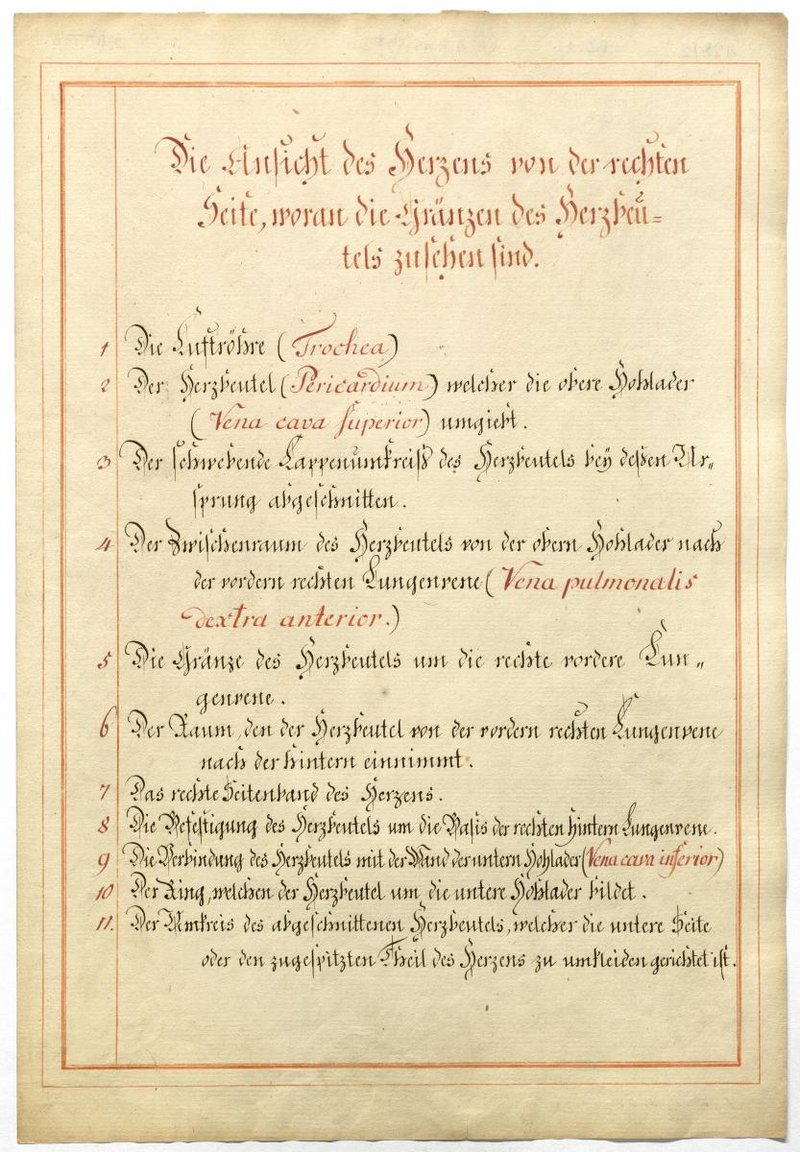 Die Ansicht des Herzens von der rechten
Seite, woran die Gränzen des Herzbeu=
tels zu sehen sind.
1 Die Luftröhre (Trochea)
2 Der Herzbeutel (Pericardium) welcher die obere Hohlader
(Vena cava superior) umgiebt.
3 Der schwebende Lappenumkreiß des Herzbeutels bey deßen Ur„
sprung abgeschnitten.
4 Der Zwischenraum des Herzbeutels von der obern Hohlader nach
der vordern rechten Lungenvene (Vena pulmonalis
dextra anterior.)
5 Die Gränze des Herzbeutels um die rechte vordere Lun„
genvene.
6 Der Raum, den der Herzbeutel von der vordern rechten Lungenvene
nach der hintern einnimmt.
7 Das rechte Seitenband des Herzens.
8 Die Befestigung des Herzbeutels um die Basis der rechten hintern Lungenvene.
9 Die Verbindung des Herzbeutels mit der Wand der untern Hohlader (Vena cava inferior)
10 Der Ring, welchen der Herzbeutel um die untere Hohlader bildet.
11. Der Umkreis des abgeschnittenen Herzbeutels, welcher die untere Seite
oder den zugespitzten Theil des Herzens zu umkleiden gerichtet ist.